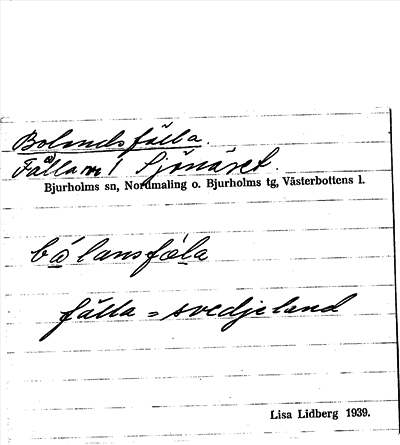 Bolandsfälla.
Fälla m / Sjönäset.
Bjurholms sn, Nordmaling o. Bjurholms tg, Västerbottens l.
bålansfæla
fälla = svedjeland
Lisa Lidberg 1939.